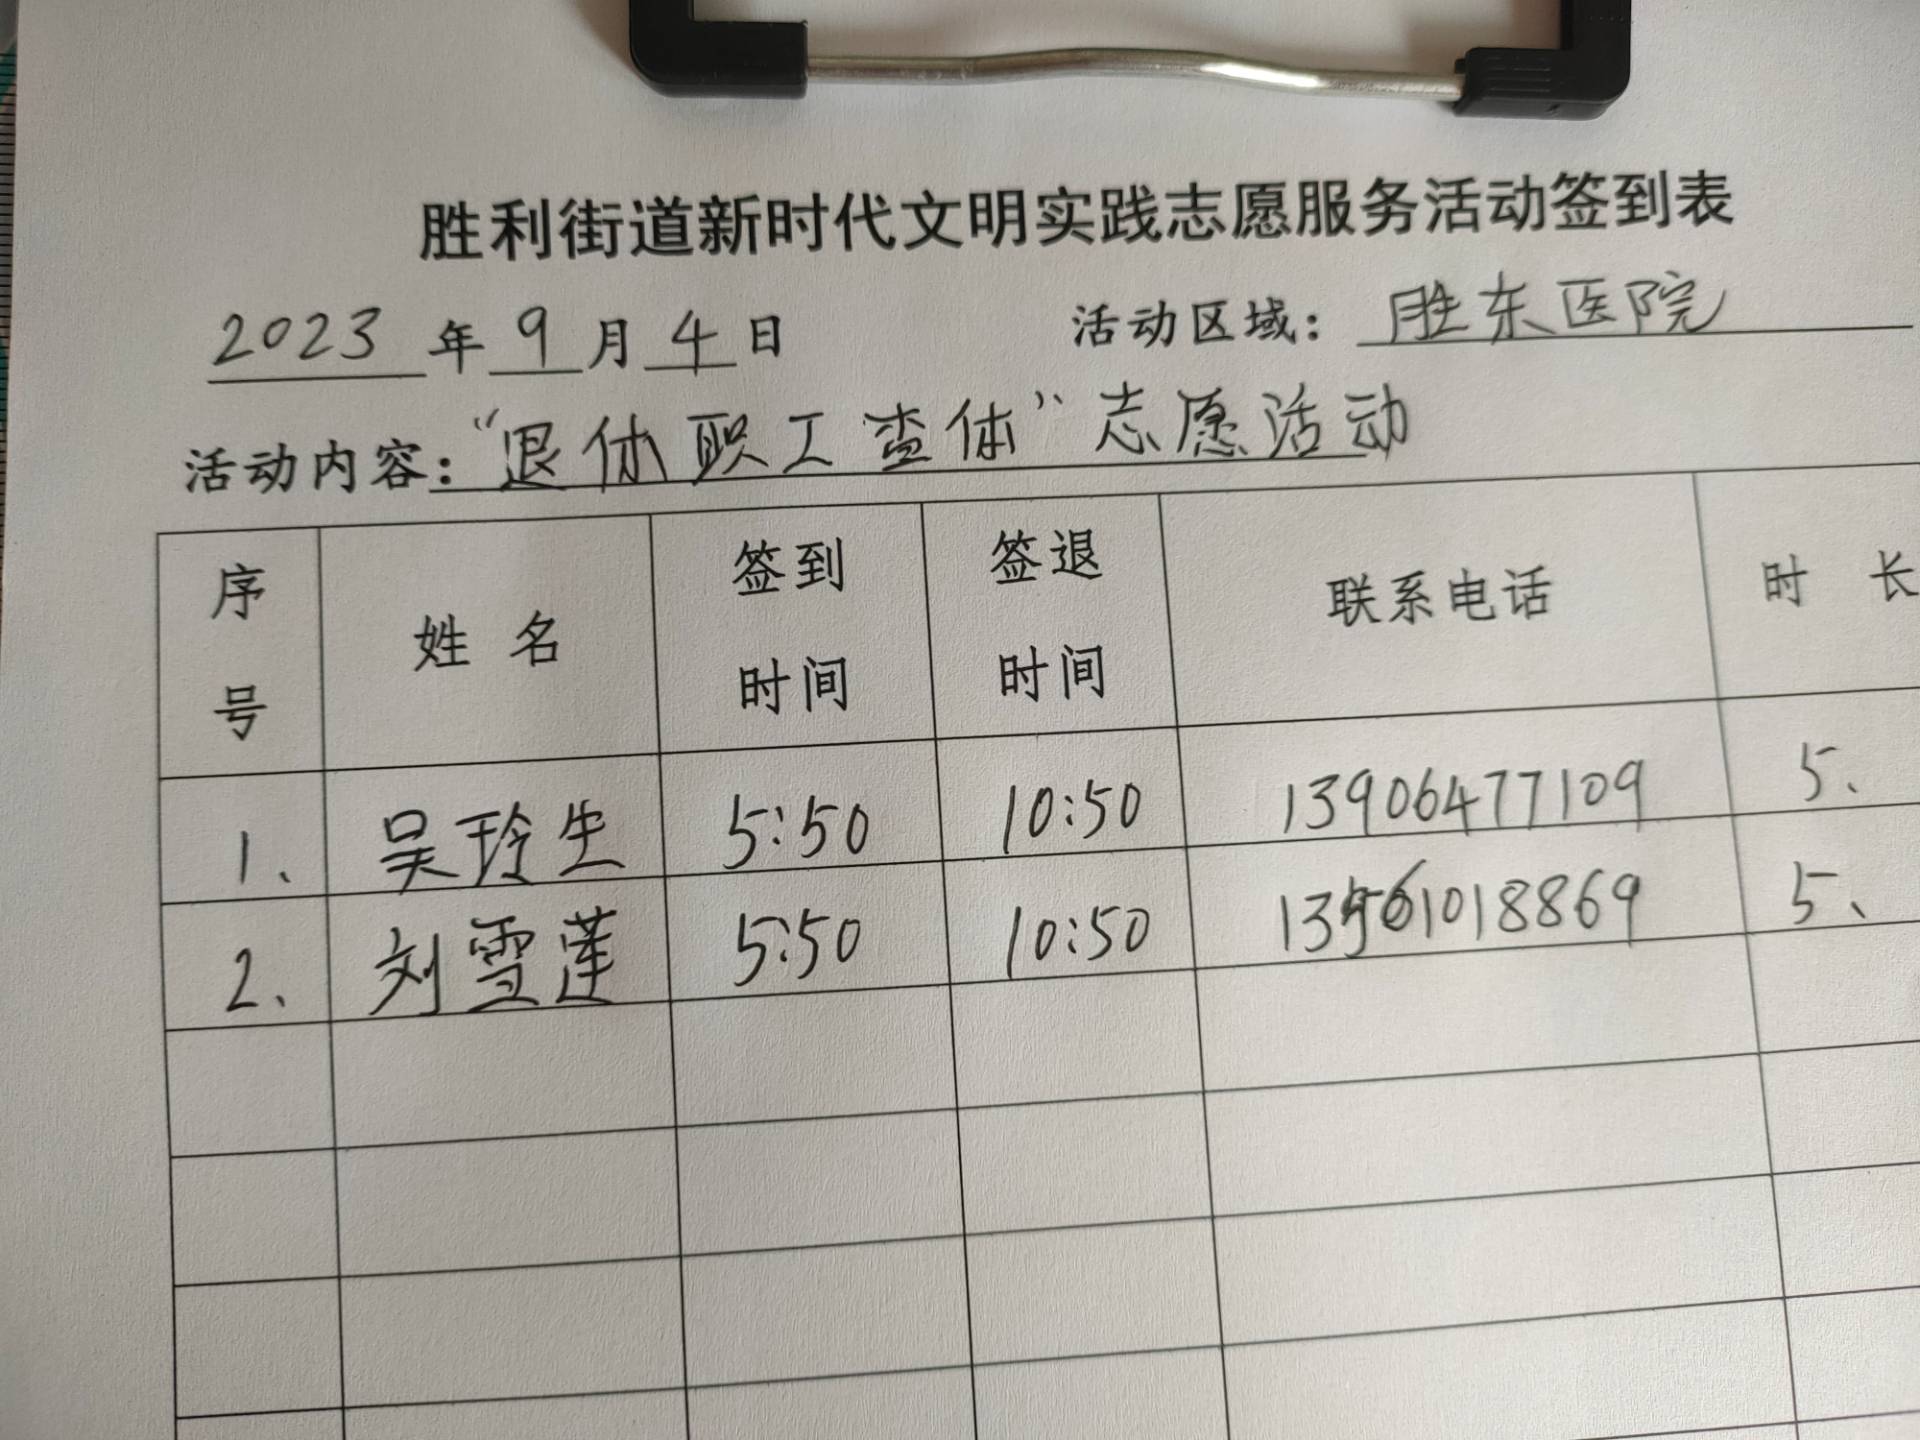 胜利街道新时代文明实践志愿服务活动签到表
2023 年 9 月 4 日 活动区域：胜东医院
活动内容："退休职工查体"志愿活动
序号 姓名 签到时间 签退时间 联系电话 时长
1、 吴玲生 5:50 10:50 13906477109 5、
2、 刘雪莲 5:50 10:50 13561018869 5、